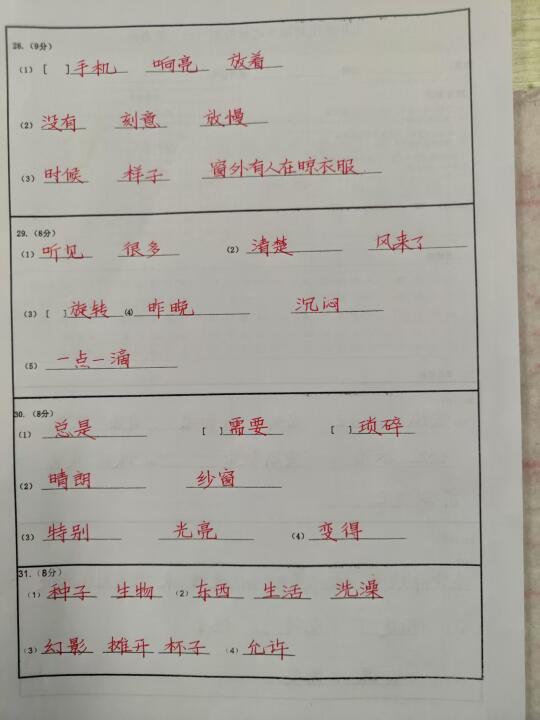 28.（9分）
（1）[ ]手机 响亮 放着
（2）没有 刻意 放慢
（3）时候 样子 窗外有人在晾衣服
29.（8分）
（1）听见 很多 （2）清楚 风来了
（3）[ ]旋转 （4）昨晚 沉闷
（5）一点一滴
30.（8分）
（1）总是 [ ]需要 [ ]琐碎
（2）晴朗 纱窗
（3）特别 光亮 （4）变得
31.（8分）
（1）种子 生物 （2）东西 生活 洗澡
（3）幻影 摊开 杯子 （4）允许